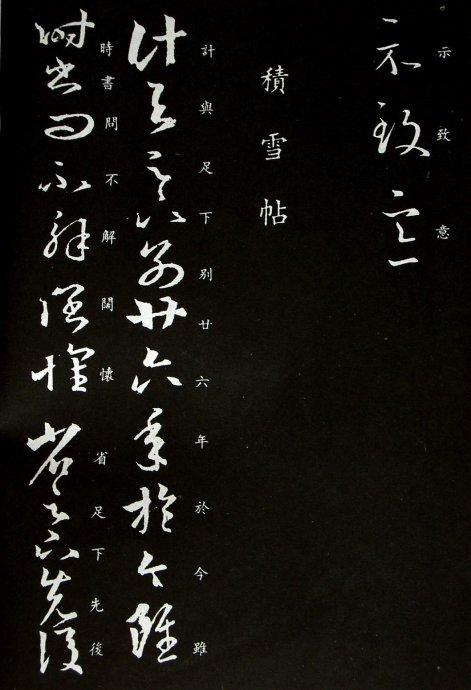 示致意
示致意
積雪帖
計與足下別廿六年於今雖
計與足下別廿六年於今雖
時書問不解闊懷省足下先後
時書問不解闊懷省足下先後